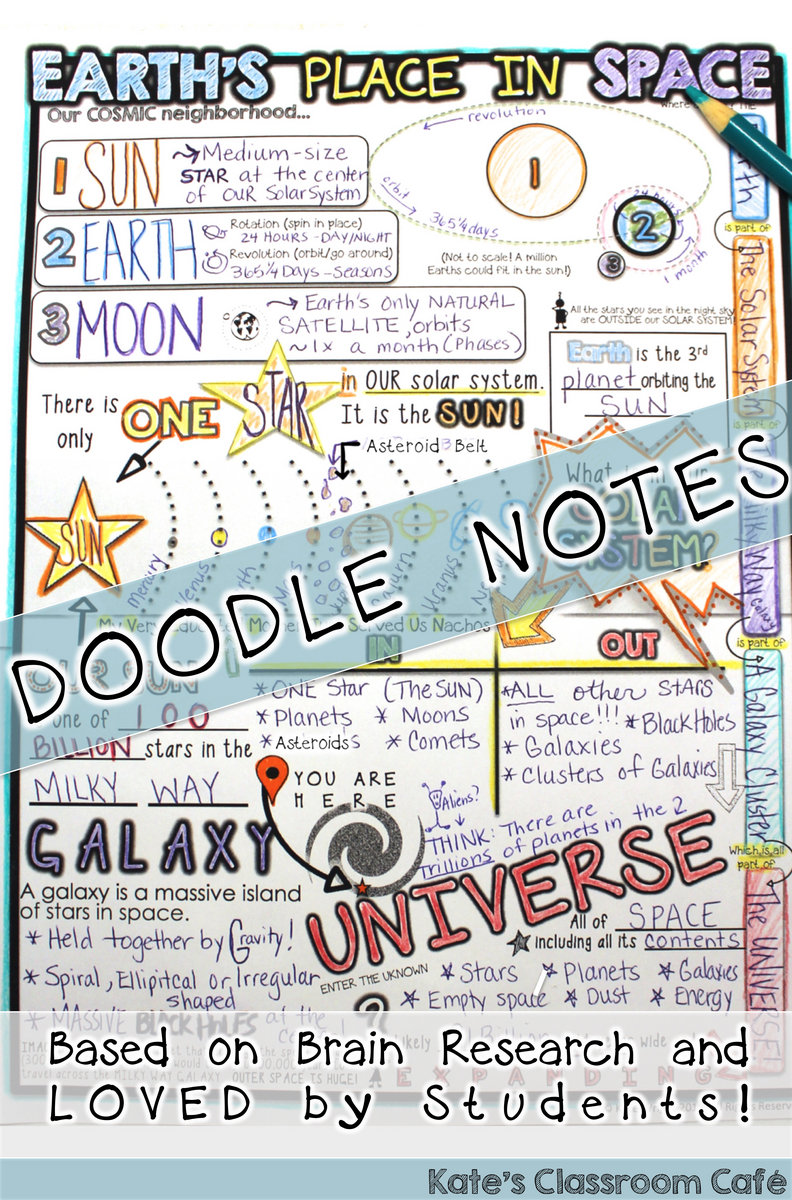 EARTH'S PLACE IN SPACE
Our COSMIC neighborhood...
1 SUN
Medium-size
STAR at the center
of OUR Solar System
revolution
1
orbit
365 1/4 days
2
3
1 month
2 EARTH
Rotation (spin in place)
24 HOURS - DAY/NIGHT
Revolution (orbit/go around)
365 1/4 Days - Seasons
(Not to scale! A million
Earths could fit in the sun!)
3 MOON
Earth's only NATURAL
SATELLITE, orbits
~1x a month (Phases)
All the stars you see in the night sky
are OUTSIDE our SOLAR SYSTEM!
Earth is the 3rd
planet orbiting the
SUN
There is
only
ONE STAR
in OUR solar system.
It is the SUN!
Asteroid Belt
SUN
Mercury
Venus
Earth
Uranus
What
SYSTEM?
DOODLE NOTES
Served Us Nachos
OUR SUN
one of 100
BILLION stars in the
MILKY WAY
GALAXY
IN
* ONE Star (The SUN)
* Planets * Moons
* Asteroids * Comets
OUT
* ALL other STARS
in space!!! * Black Holes
* Galaxies
* Clusters of Galaxies
YOU ARE
HERE
Aliens?
THINK: There are
trillions of planets in the 2
A galaxy is a massive island
of stars in space.
* Held together by Gravity!
* Spiral, Ellipitcal or Irregular
shaped
* MASSIVE BLACK HOLES at the
UNIVERSE
All of SPACE
including all its contents
ENTER THE UKNOWN
Stars Planets Galaxies
Empty space Dust Energy
?
is part of
The Solar System
is part of
The Milky Way Galaxy
is part of
A Galaxy Cluster
which is all
part of
The UNIVERSE!
travel across the MILKY WAY GALAXY. OUTER SPACE IS HUGE!
EXPANDING
Based on Brain Research and
LOVED by Students!
Kate's Classroom Café